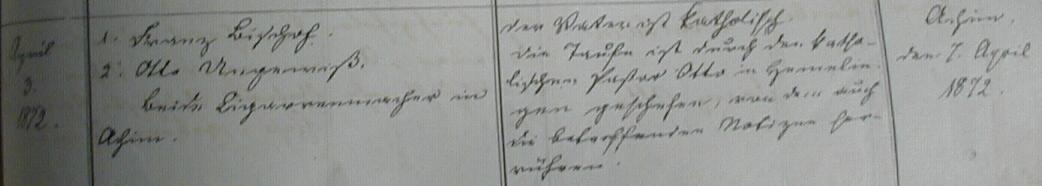 April
3.
1872.
1. Franz Bischof.
2. Otto Ungewiß.
beide Cigarrenmacher in
Achim.
der Vater ist katholisch.
Die Taufe ist durch den katho-
lischen Pastor Otto in Hemelin-
gen geschehen, von dem auch
die betreffenden Notizen her-
rühren.
Achim,
den 7. April
1872.